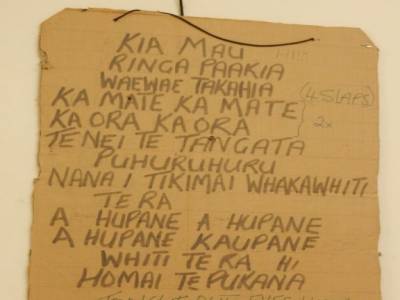 KIA MAU
RINGA PAAKIA
WAEWAE TAKAHIA
KA MATE KA MATE (4 SLAPS)
KA ORA KA ORA 2x
TENEI TE TANGATA
PUHURUHURU
NANA I TIKIMAI WHAKAWHITI
TE RA
A HUPANE A HUPANE
A HUPANE KAUPANE
WHITI TE RA HI
HOMAI TE PUKANA